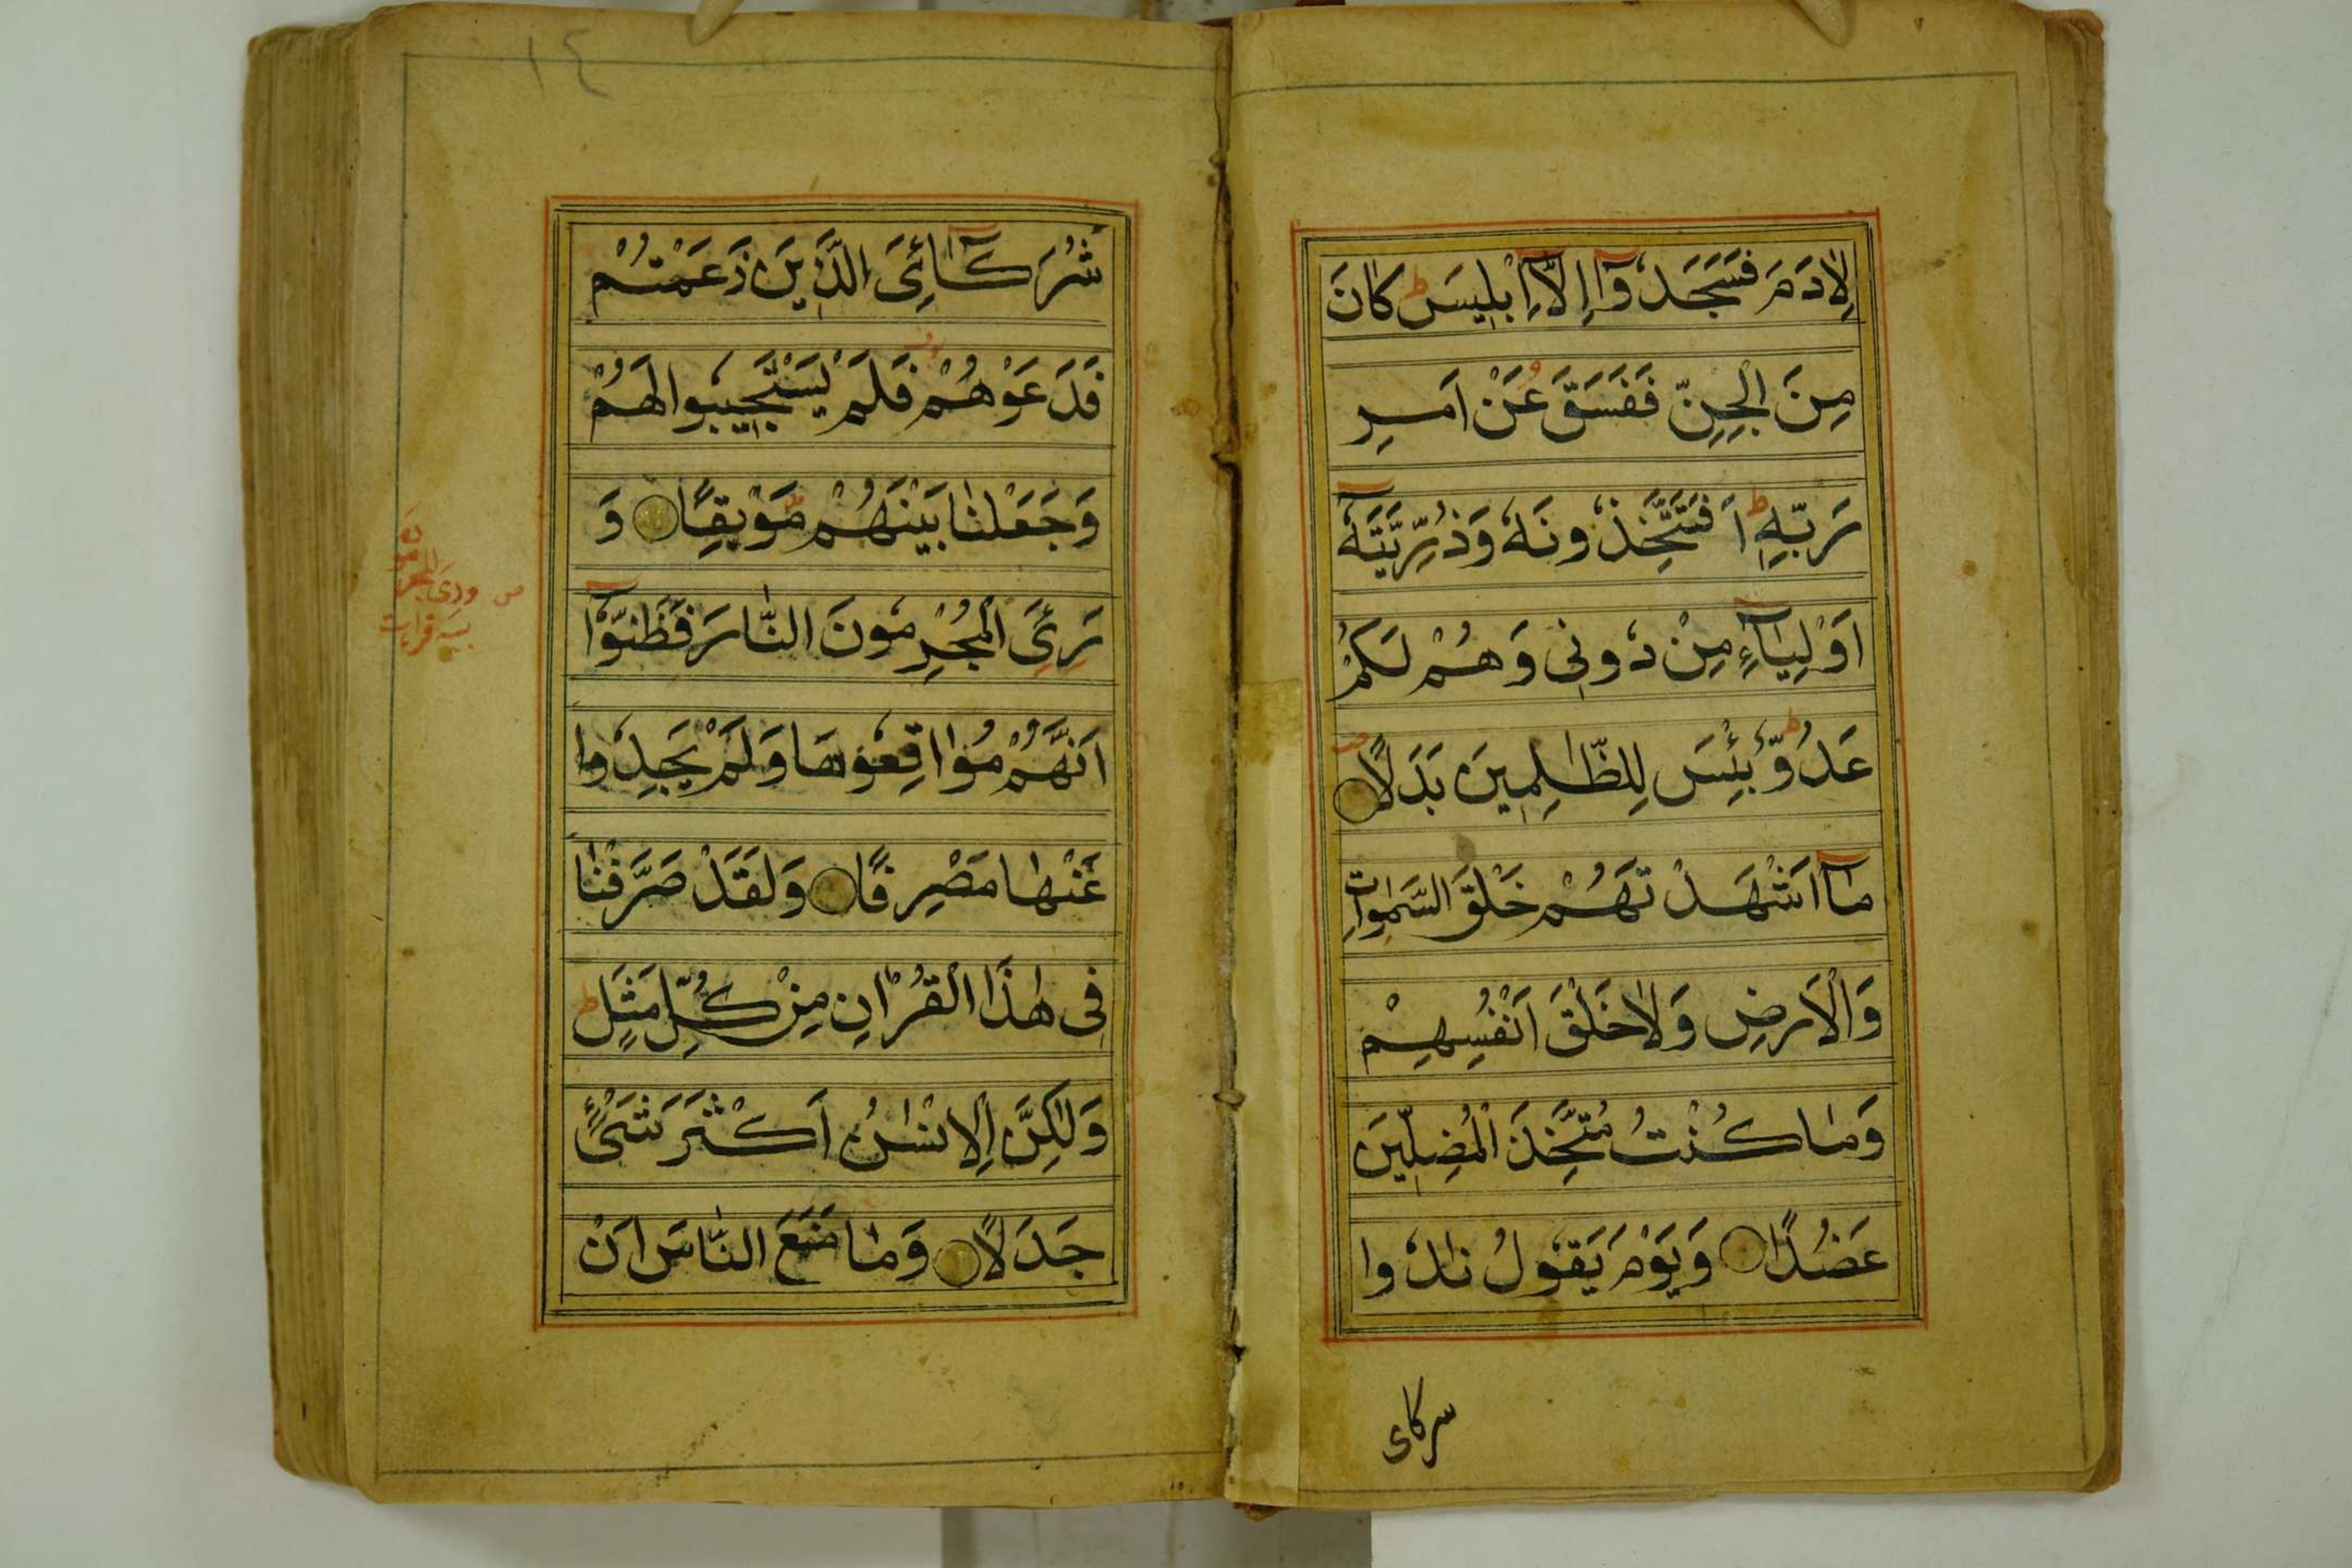 لِاٰدَمَ فَسَجَدُوٓا اِلَّآ اِبْلِيسَ ط كَانَ
مِنَ الْجِنِّ فَفَسَقَ عَنْ اَمرِ
رَبِّهِ ط اَفَتَتَّخِذُونَهُ وَذُرِّيَّتَهٓ
اَوْلِيَآءَ مِنْ دُونِى وَهُمْ لَكُمْ
عَدُوٌّ ط بِئْسَ لِلظّٰلِمِينَ بَدَلًا
مَآ اَشْهَدْتُهُمْ خَلْقَ السَّمٰوَاتِ
وَالْاَرضِ وَلَا خَلْقَ اَنْفُسِهِمْ
وَمَا كُنْتُ مُتَّخِذَ الْمُضِلِّينَ
عَضُدًا وَيَوْمَ يَقُولُ نَادُوا
شركاى
١٤
شُرَكَآئِىَ الَّذِينَ زَعَمْتُمْ
فَدَعَوْهُمْ فَلَمْ يَسْتَجِيبُوا لَهُمْ
وَجَعَلْنَا بَيْنَهُمْ مَوْبِقًا وَ
رَئَى الْمُجْرِمُونَ النَّارَ فَظَنُّوٓا
اَنَّهُمْ مُوَاقِعُوهَا وَلَمْ يَجِدُوا
عَنْهَا مَصْرِفًا وَلَقَدْ صَرَّفْنَا
فِى هٰذَا الْقُرْاٰنِ مِنْ كُلِّ مَثَلٍ ط
وَلٰكِنَّ الِانْسٰنُ اَكْثَرَ شَىْءٍ
جَدَلًا وَمَا مَنَعَ النَّاسَ اَنْ